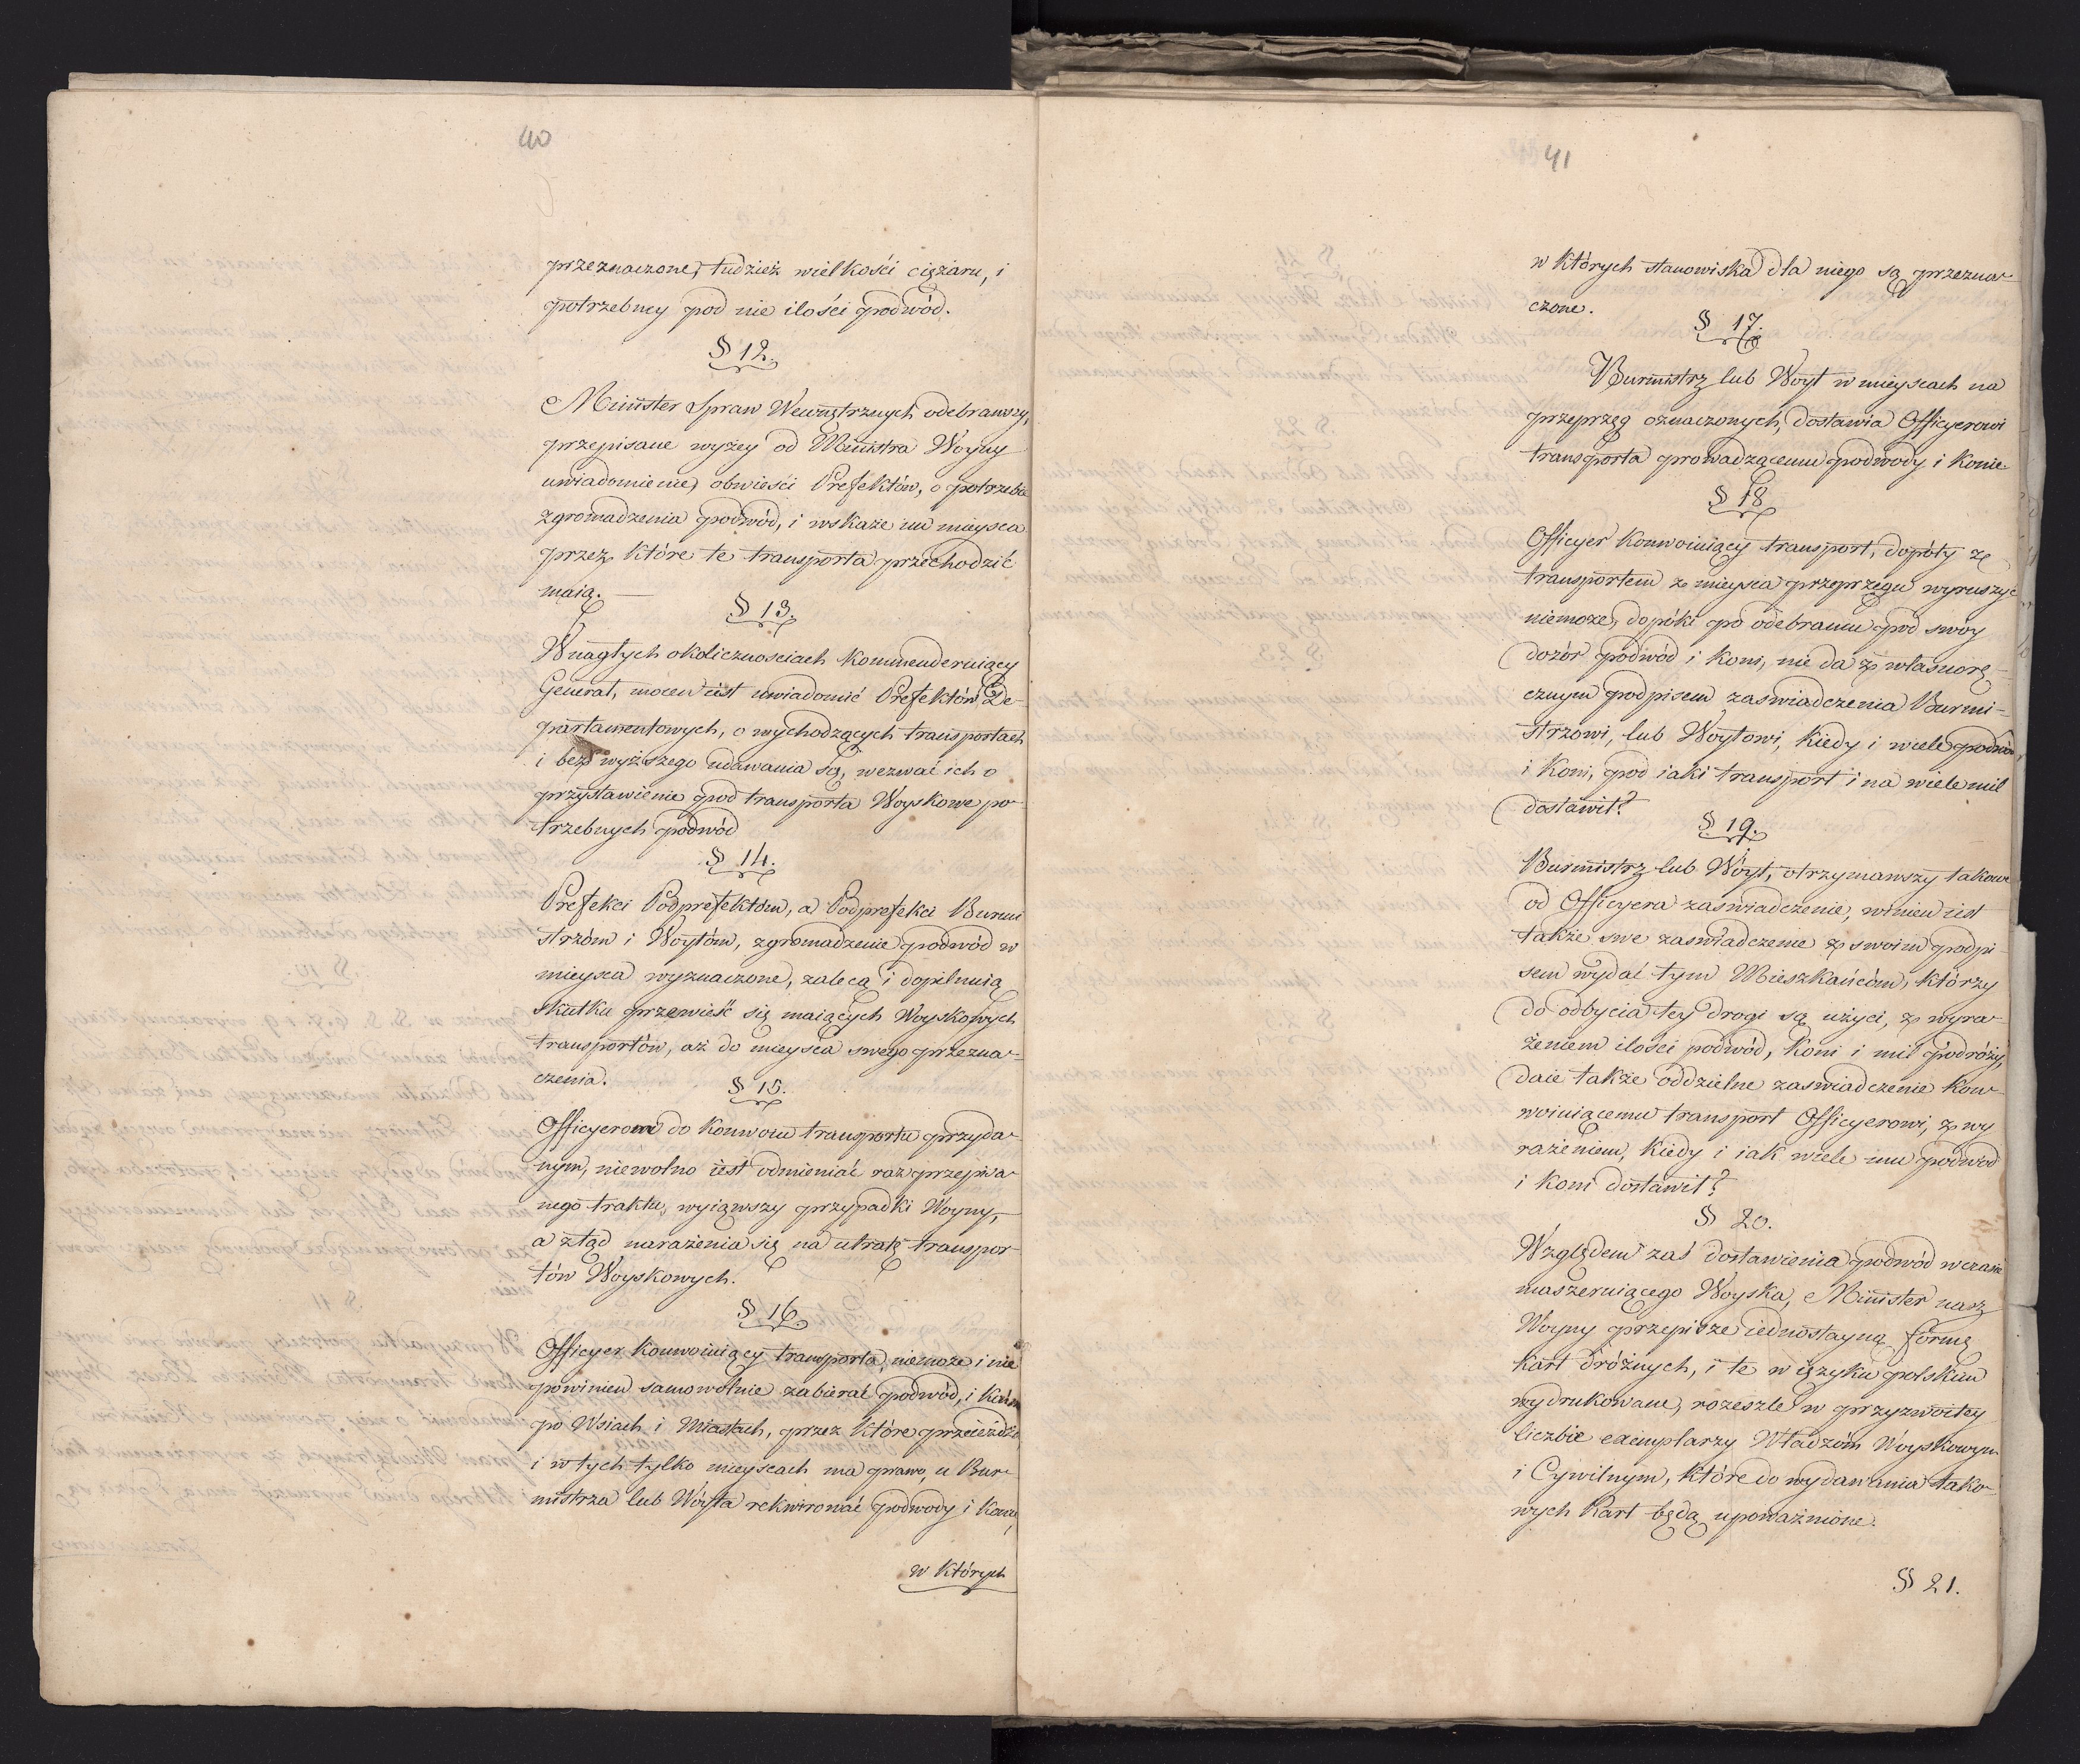 40
przeznaczone, tudzież wielkości ciężaru, i
potrzebney pod nie ilości podwód.
§ 12.
Minister Spraw Wewnętrznych odebrawszy,
przepisane wyżey od Ministra Woyny
uwiadomienie, obwieści Prefektów, o potrzebie
zgromadzenia podwód, i wskaże im mieysca
przez które te transporta przechodzić
maią. —
§ 13.
W nagłych okolicznosciach kommenderuiący
Generał, mocen iest uwiadomić Prefektów De-
partamentowych, o wychodzących transportach
i bez wyższego udawania się, wezwać ich o
przystawienie pod transporta Woyskowe po-
trzebnych podwód
§ 14.
Prefekci Podprefektom, a Podprefekci Burmi
strzóm i Woytóm, zgromadzenie podwód w
mieysca wyznaczone, zalecą i dopilnuią
skutku przewieść się maiących Woyskowych
transportów, aż do mieysca swego przezna-
czenia.
§ 15.
Officyerowi do konwoiu transportu przyda-
nym, niewolno iest odmieniać raz przepisa-
nego traktu, wyiąwszy przypadki Woyny,
a ztąd narażenia się na utratę transpor-
tów Woyskowych.
§ 16.
Officyer konwoiuiący transporta, niemoże i nie
powinien samowolnie zabierać podwód, i koni
po Wsiach i Miastach, przez które przeieżdża
i w tych tylko mieyscach ma prawo, u Bur-
mistrza lub Wóyta rekwirować podwody i konie,
w których
41
w których stanowiska dla niego są przezna-
czone.
§ 17.
Burmistrz lub Woyt w mieyscach na
przeprząg oznaczonych, dostawia Officyerowi
transporta prowadzącemu podwody i konie
§ 18
Officyer konwoiuiący transport, dopóty ze
transportem z mieysca przeprzęgu wyruszyć
niemoże, dopóki po odebraniu pod swoy
dozór podwód i koni, nie da z własnorę-
cznym podpisem zaswiadczenia Burmi-
strzowi, lub Woytowi, kiedy i wiele podwód,
i koni, pod iaki transport i na wiele mil
dostawił?
§ 19.
Burmistrz lub Wóyt, otrzymawszy takowe
od Officyera zaswiadczenie, winien iest
także swe zaswiadczenie z swoim podpi-
sem wydać tym Mieszkańcóm, którzy
do odbycia tey drogi są użyci, z wyra-
żeniem ilości podwód, koni i mil podróży,
daie także oddzielne zaswiadczenie kon-
woiuiącemu transport Officyerowi, z wy
rażeniem, kiedy i iak wiele mu podwód
i koni dostawił?
§ 20.
Względem zaś dostawienia podwód w czasie
maszeruiącego Woyska, Minister nasz
Woyny przepisze iednostayną formę
kart dróżnych, i te w ięzyku polskim
wydrukowane, rozeszle w przyzwoitey
liczbie exemplarzy Władzóm Woyskowym
i Cywilnym, które do wydawania tako-
wych Kart będą upoważnione.
§ 21.